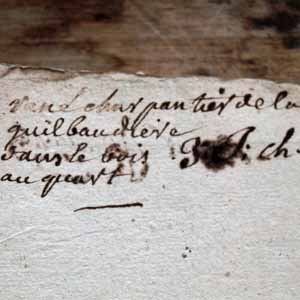 René charpantier de la
guilbaudiere
dans le bois 3 ch.
au quart